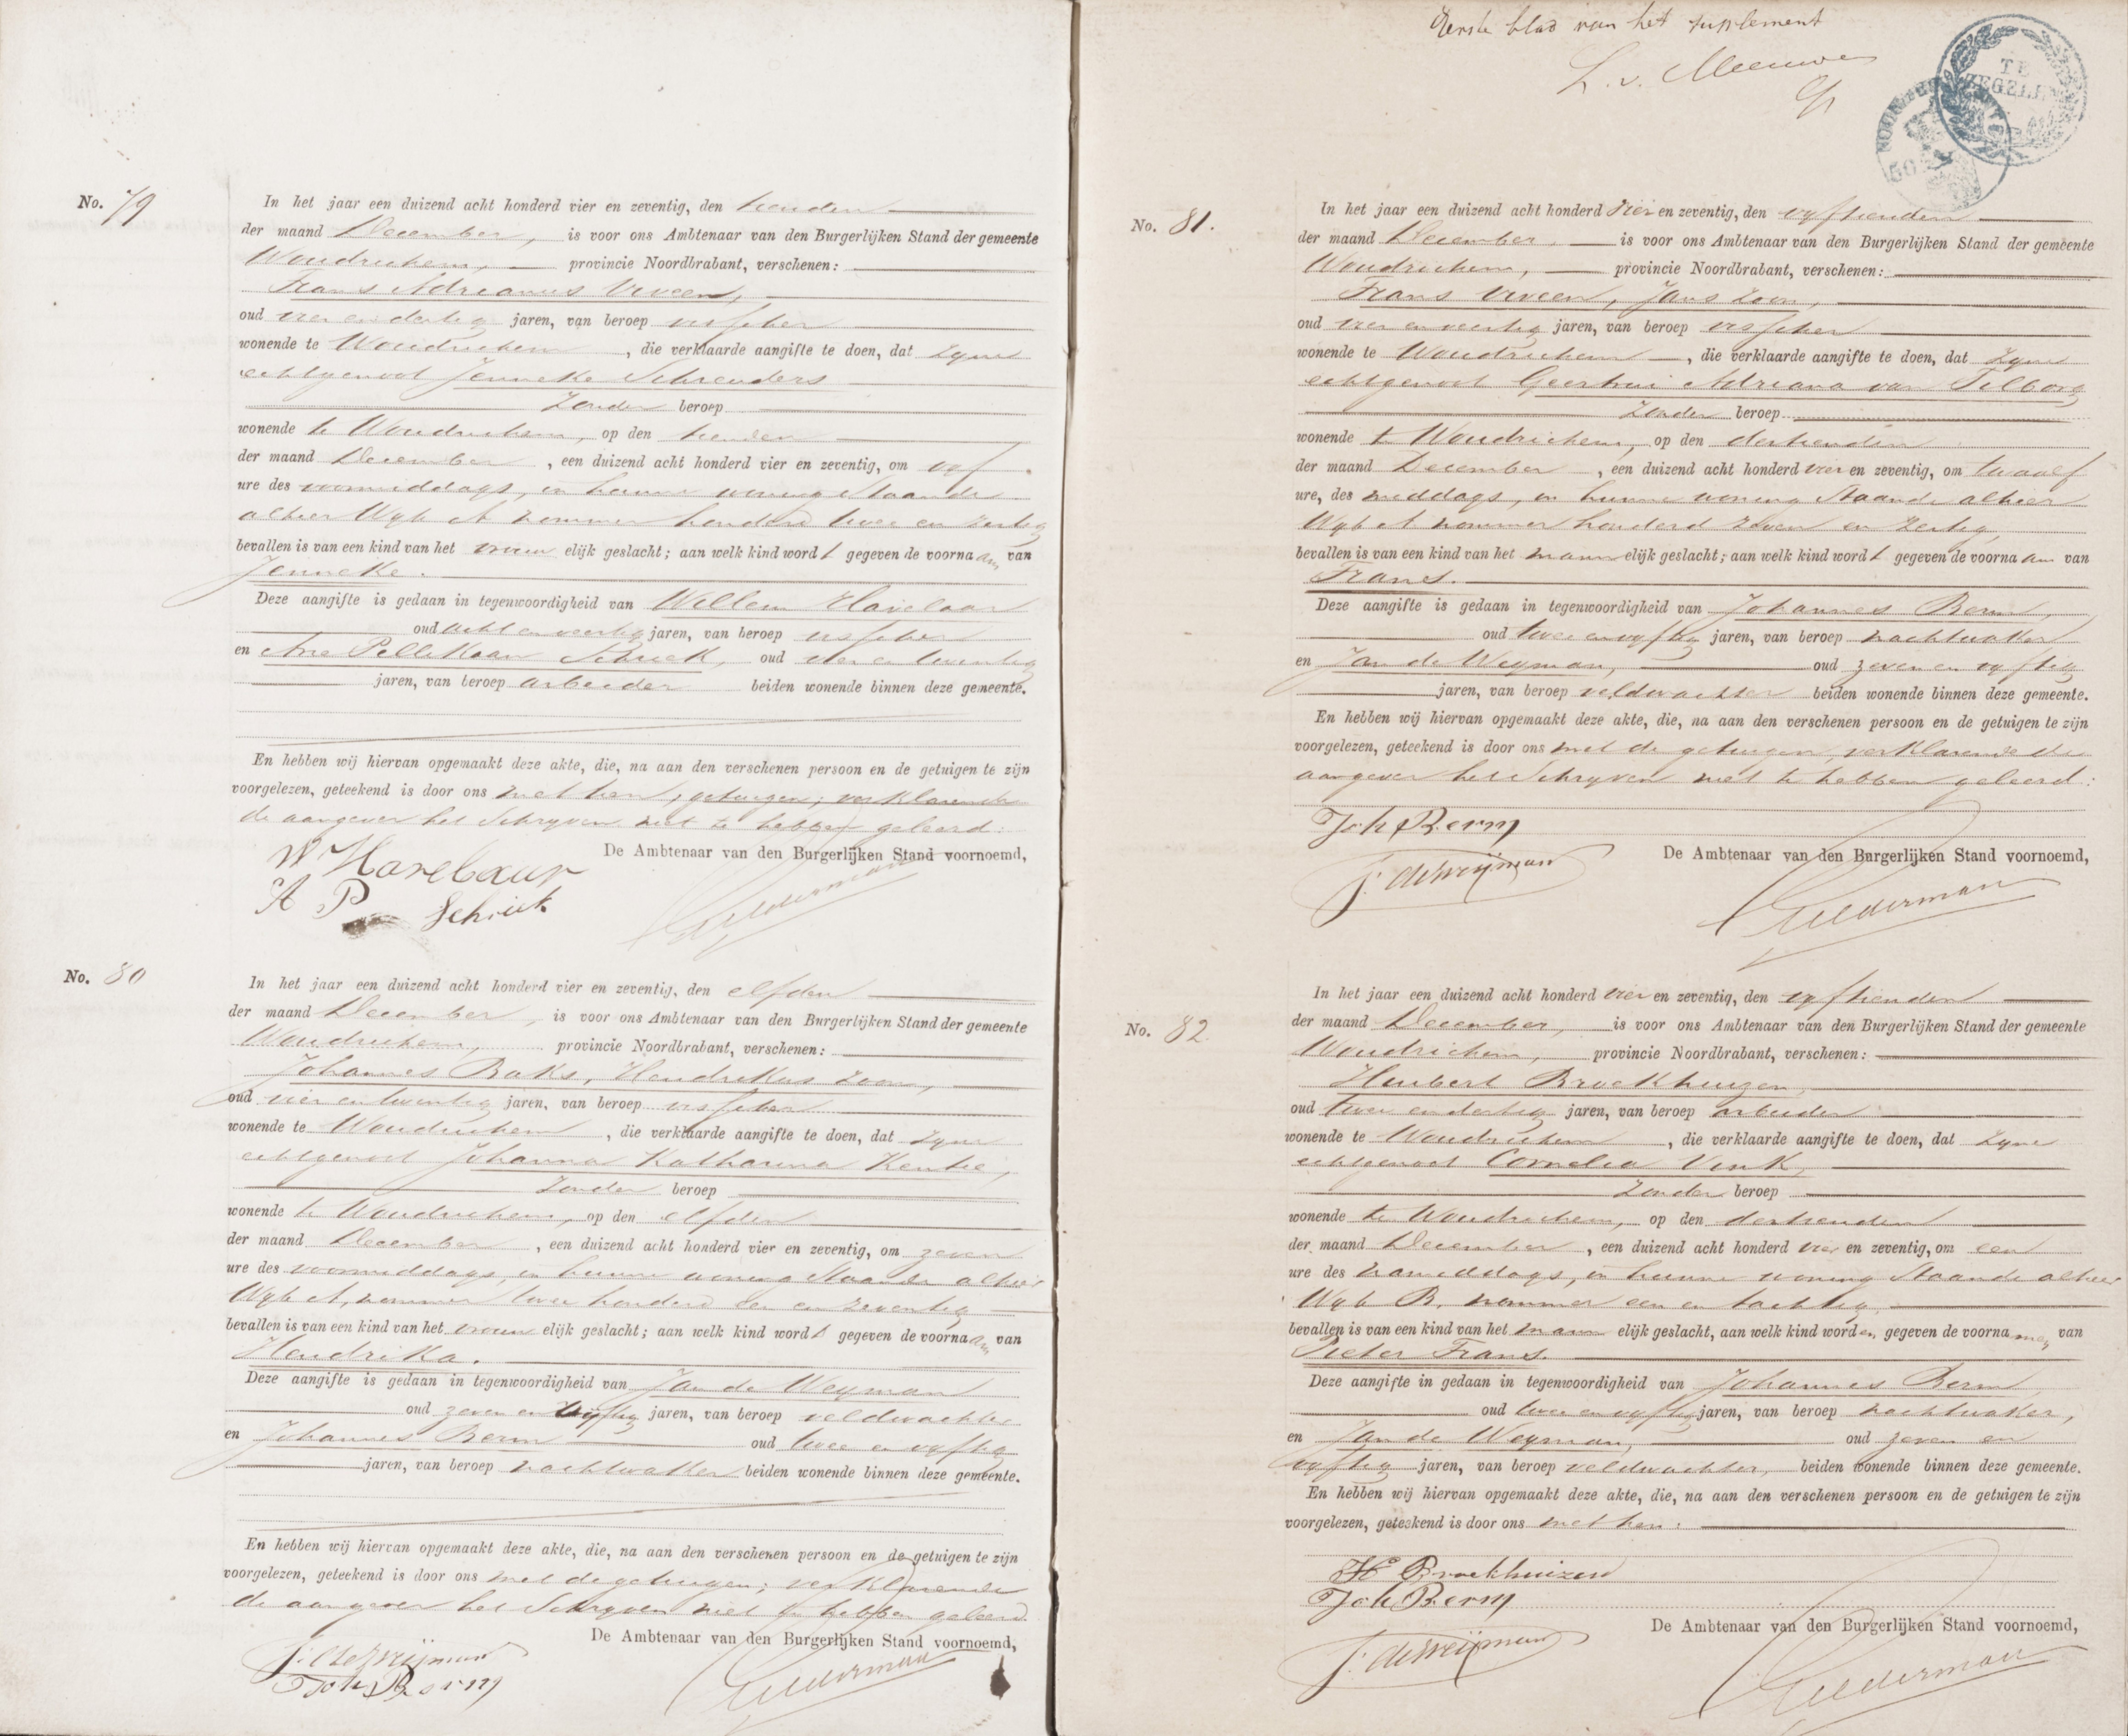 No. 79
In het jaar een duizend acht honderd vier en zeventig, den tienden
der maand December, is voor ons Ambtenaar van den Burgerlijken Stand der gemeente
Woudrichem, provincie Noordbrabant, verschenen:
Frans Adrianus Viveen,
oud vier en dertig jaren, van beroep visscher
wonende te Woudrichem, die verklaarde aangifte te doen, dat zyne
echtgenoot Jenneke Schreuders
zonder beroep
wonende te Woudrichem, op den tienden
der maand December, een duizend acht honderd vier en zeventig, om vyf
ure des voormiddags, in hunne woning staande
alhier Wyk A nommer honderd twee en zestig
bevallen is van een kind van het vrouwelijk geslacht; aan welk kind wordt gegeven de voornaam van
Jenneke.
Deze aangifte is gedaan in tegenwoordigheid van Willem Havelaar
oud acht en veertig jaren, van beroep visscher
en Arie Pellikaan Schuck, oud vier en twentig
jaren, van beroep arbeider beiden wonende binnen deze gemeente.
En hebben wij hiervan opgemaakt deze akte, die, na aan den verschenen persoon en de getuigen te zijn
voorgelezen, geteekend is door ons met hen, getuigen; verklarende
de aangever het schryven niet te hebben geleerd:
De Ambtenaar van den Burgerlijken Stand voornoemd,
W Havelaar
A P Schuck
Gelderman
No. 80
In het jaar een duizend acht honderd vier en zeventig, den elfden
der maand December, is voor ons Ambtenaar van den Burgerlijken Stand der gemeente
Woudrichem, provincie Noordbrabant, verschenen:
Johannes Baks, Hendrikus zoon,
oud vier en twentig jaren, van beroep visscher
wonende te Woudrichem, die verklaarde aangifte te doen, dat zyne
echtgenoot Johanna Katharina
zonder beroep
wonende te Woudrichem, op den elfden
der maand December, een duizend acht honderd vier en zeventig, om zeven
ure des voormiddags, in hunne woning staande alhier
Wyk A, nommer twee honderd een en zeventig
bevallen is van een kind van het vrouwelijk geslacht; aan welk kind wordt gegeven de voornaam van
Hendrika.
Deze aangifte is gedaan in tegenwoordigheid van Jan de Weyman
oud zeven en vyftig jaren, van beroep veldwachter
en Johannes Berm oud twee en vyftig
jaren, van beroep nachtwaker beiden wonende binnen deze gemeente.
En hebben wij hiervan opgemaakt deze akte, die, na aan den verschenen persoon en de getuigen te zijn
voorgelezen, geteekend is door ons met de getuigen; verklarende
de aangever het schryven niet te hebben geleerd.
De Ambtenaar van den Burgerlijken Stand voornoemd,
J: de Weijman
Joh Berm
Gelderman
Eerste blad van het suplement
L. v. Meeuwen
TE ZEGELEN
50
No. 81.
In het jaar een duizend acht honderd vier en zeventig, den vyftienden
der maand December, is voor ons Ambtenaar van den Burgerlijken Stand der gemeente
Woudrichem, provincie Noordbrabant, verschenen:
Frans Viveen, Jans zoon,
oud vier en veertig jaren, van beroep visscher
wonende te Woudrichem, die verklaarde aangifte te doen, dat zyne
echtgenoot Geertrui Adriana van Tilborg
zonder beroep
wonende te Woudrichem, op den dertienden
der maand December, een duizend acht honderd vier en zeventig, om twaalf
ure, des middags, in hunne woning staande alhier
Wyk A nommer honderd zeven en zestig
bevallen is van een kind van het mannelijk geslacht; aan welk kind wordt gegeven de voornaam van
Frans.
Deze aangifte is gedaan in tegenwoordigheid van Johannes Berm,
oud twee en vyftig jaren, van beroep nachtwaker
en Jan de Weyman, oud zeven en vyftig
jaren, van beroep veldwachter beiden wonende binnen deze gemeente.
En hebben wij hiervan opgemaakt deze akte, die, na aan den verschenen persoon en de getuigen te zijn
voorgelezen, geteekend is door ons met de getuigen, verklarende de
aangever het schryven niet te hebben geleerd:
Joh Berm
De Ambtenaar van den Burgerlijken Stand voornoemd,
J: de Weijman
Gelderman
No. 82.
In het jaar een duizend acht honderd vier en zeventig, den vyftienden
der maand December, is voor ons Ambtenaar van den Burgerlijken Stand der gemeente
Woudrichem, provincie Noordbrabant, verschenen:
Huibert Broekhuizen,
oud twee en dertig jaren, van beroep arbeider
wonende te Woudrichem, die verklaarde aangifte te doen, dat zyne
echtgenoot Cornelia Vink,
zonder beroep
wonende te Woudrichem, op den dertienden
der maand December, een duizend acht honderd vier en zeventig, om een
ure des namiddags, in hunne woning staande alhier
Wyk B, nommer een en tachtig,
bevallen is van een kind van het mannelijk geslacht, aan welk kind worden gegeven de voornamen van
Pieter Frans.
Deze aangifte in gedaan in tegenwoordigheid van Johannes Berm
oud twee en vyftig jaren, van beroep nachtwaker,
en Jan de Weyman, oud zeven en
vyftig jaren, van beroep veldwachter, beiden wonende binnen deze gemeente.
En hebben wij hiervan opgemaakt deze akte, die, na aan den verschenen persoon en de getuigen te zijn
voorgelezen, geteekend is door ons met hen:
H Broekhuizen
Joh Berm
De Ambtenaar van den Burgerlijken Stand voornoemd,
J: de Weijman
Gelderman